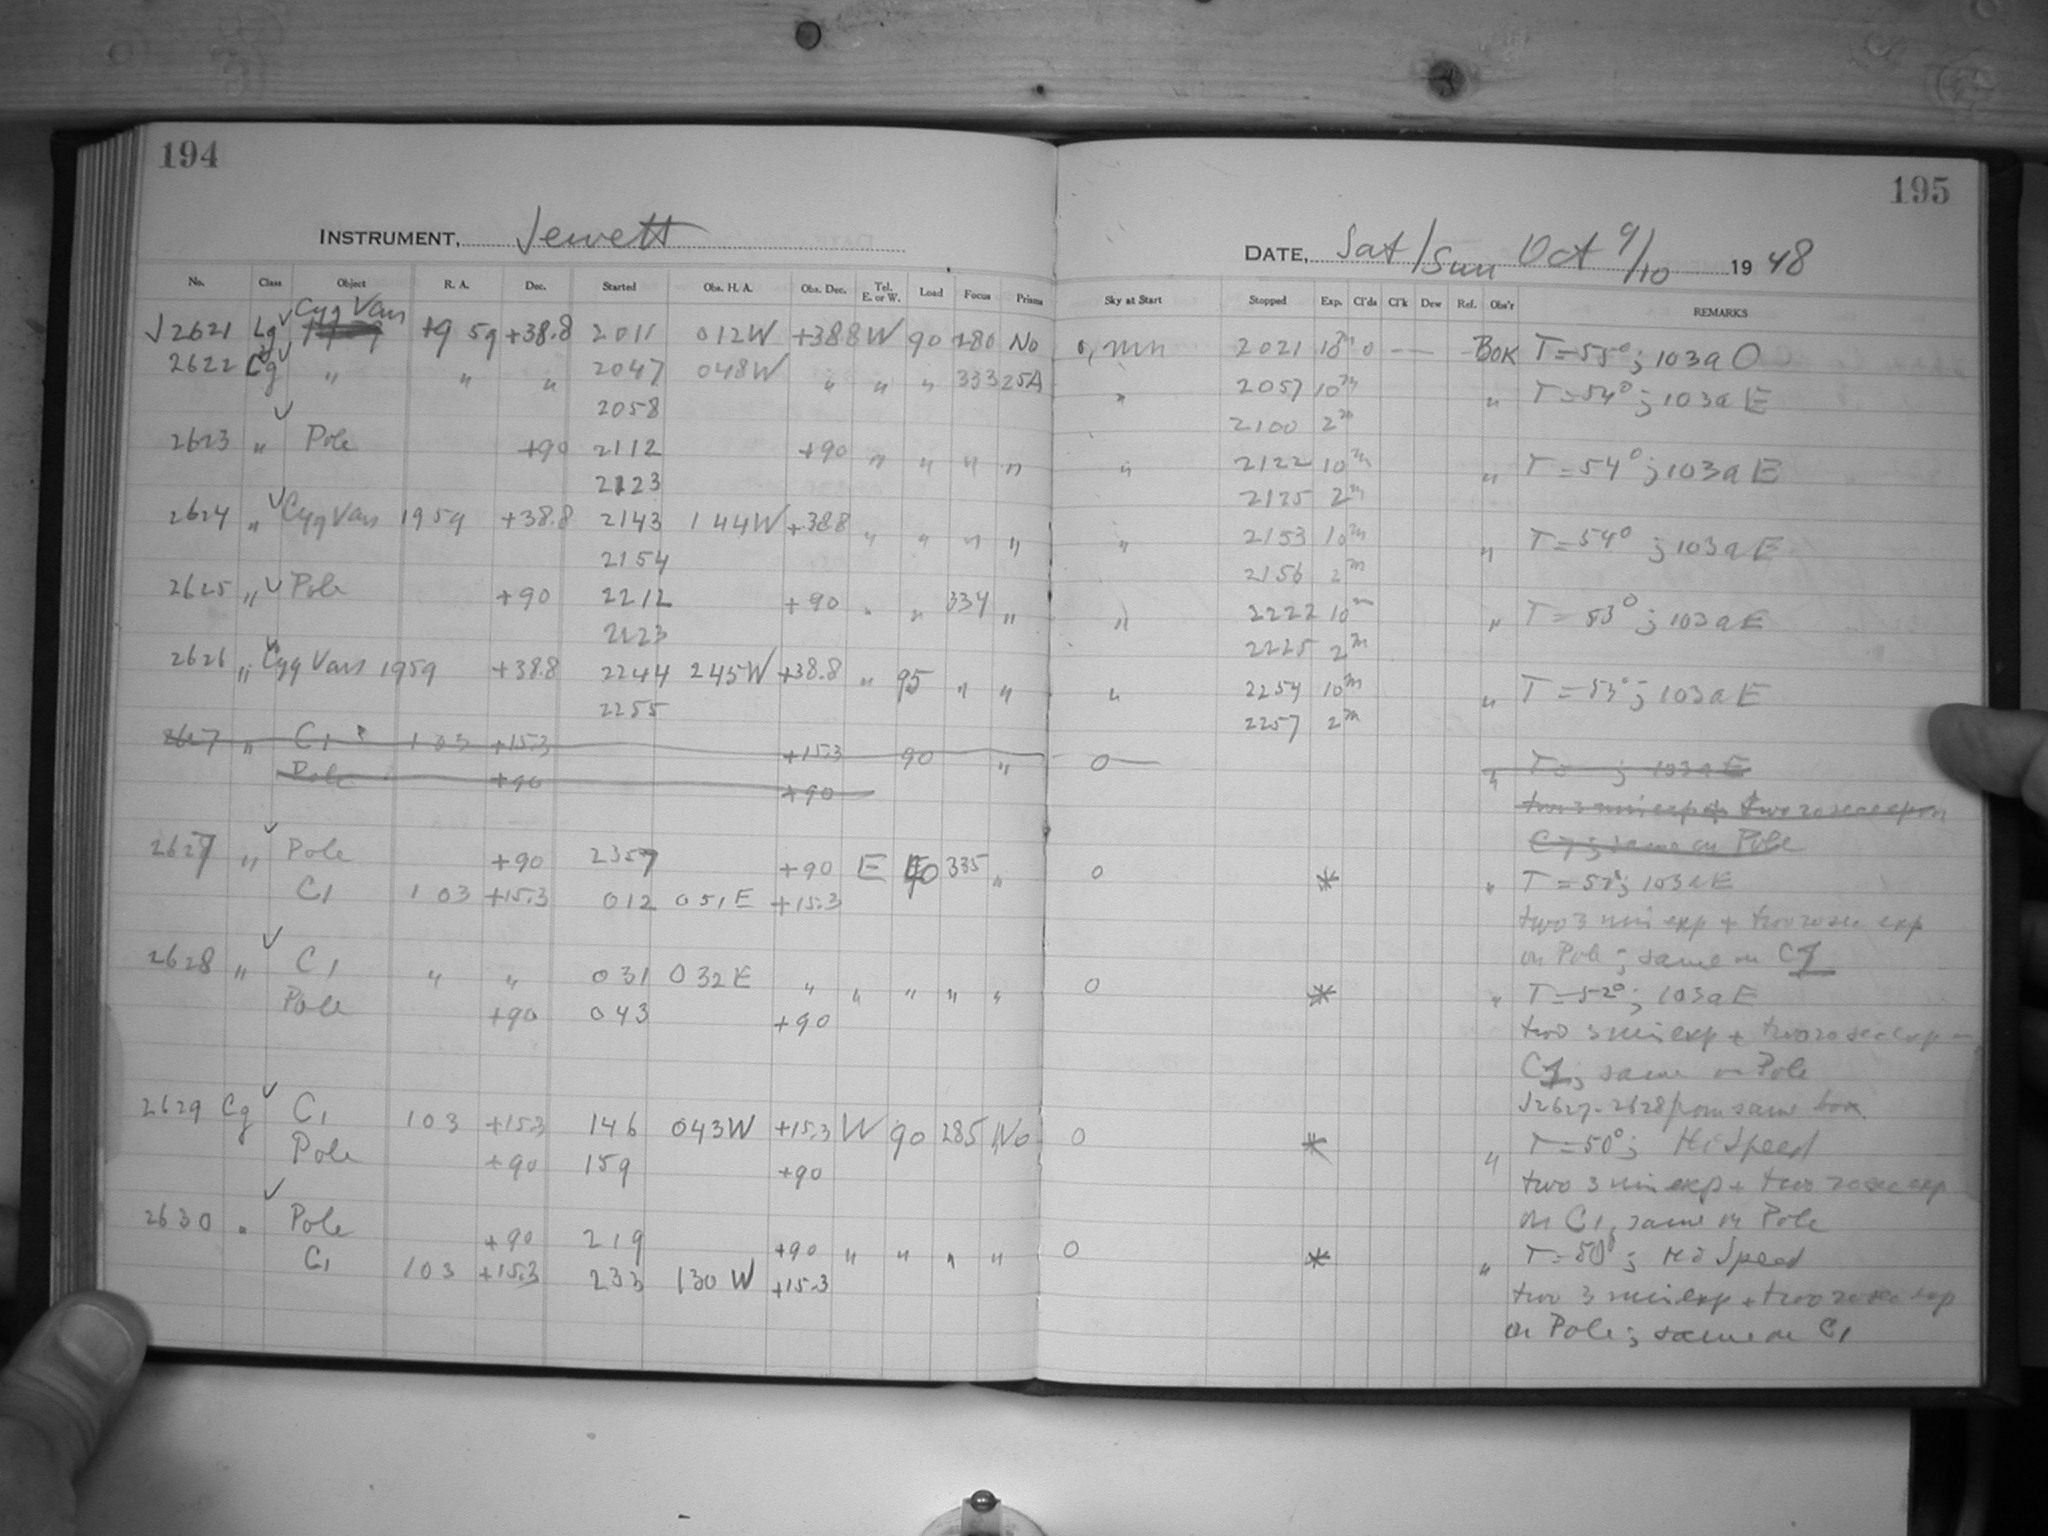 194
INSTRUMENT, Jewett
No. Class Object R. A. Dec. Started Obs. H. A. Obs. Dec. Tel. E. or W. Load Focus Prisms
Cyg Vars
J2621 Lg 19 59 +38.8 2011 012W +388 W 90 280 No
2622 Cg " " " 2047 048W " " " 333 25A
2058
2623 " Pole +90 2112 +90 " " " "
2123
2624 " Cyg Vars 1959 +38.8 2143 144W +38.8 " " " "
2154
2625 " Pole +90 2212 +90 " " 334 "
2223
2626 " Cyg Vars 1959 +38.8 2244 245W +38.8 " 95 " "
2255
2627 " C1 103 +15.3 +15.3 90 "
Pole +90 +90
2627 " Pole +90 2357 +90 E 90 335 "
C1 103 +15.3 012 051E +15.3
2628 " C1 " " 031 032E " " " " "
Pole +90 043 +90
2629 Cg C1 103 +15.3 146 043W +15.3 W 90 285 No
Pole +90 159 +90
2630 " Pole +90 219 +90 " " " "
C1 103 +15.3 233 130W +15.3
195
DATE, Sat/Sun Oct 9/10 1948
Sky at Start Stopped Exp. Cl'ds Cl'k Dew Ref. Obs'r REMARKS
0, mn 2021 10m 0 — — BOK T=55°; 103a O
" 2057 10m " T=54°; 103a E
2100 2m
" 2122 10m " T=54°; 103a E
2125 2m
" 2153 10m " T=54°; 103a E
2156 2m
" 2222 10m " T=53°; 103a E
2225 2m
" 2254 10m " T=53°; 103a E
2257 2m
0 " T= ; 103a E
two 3 min exp + two 20 sec exp on
C1; same on Pole
0 * " T=52°; 103a E
two 3 min exp + two 20 sec exp
on Pole; same on C1
0 * " T=52°; 103a E
two 3 min exp + two 20 sec exp —
C1; same on Pole
J2627-2628 from same box
0 * " T=50°; Hi Speed
two 3 min exp + two 20 sec exp
on C1, same on Pole
0 * " T=50°; Hi Speed
two 3 min exp + two 20 sec exp
on Pole; same on C1